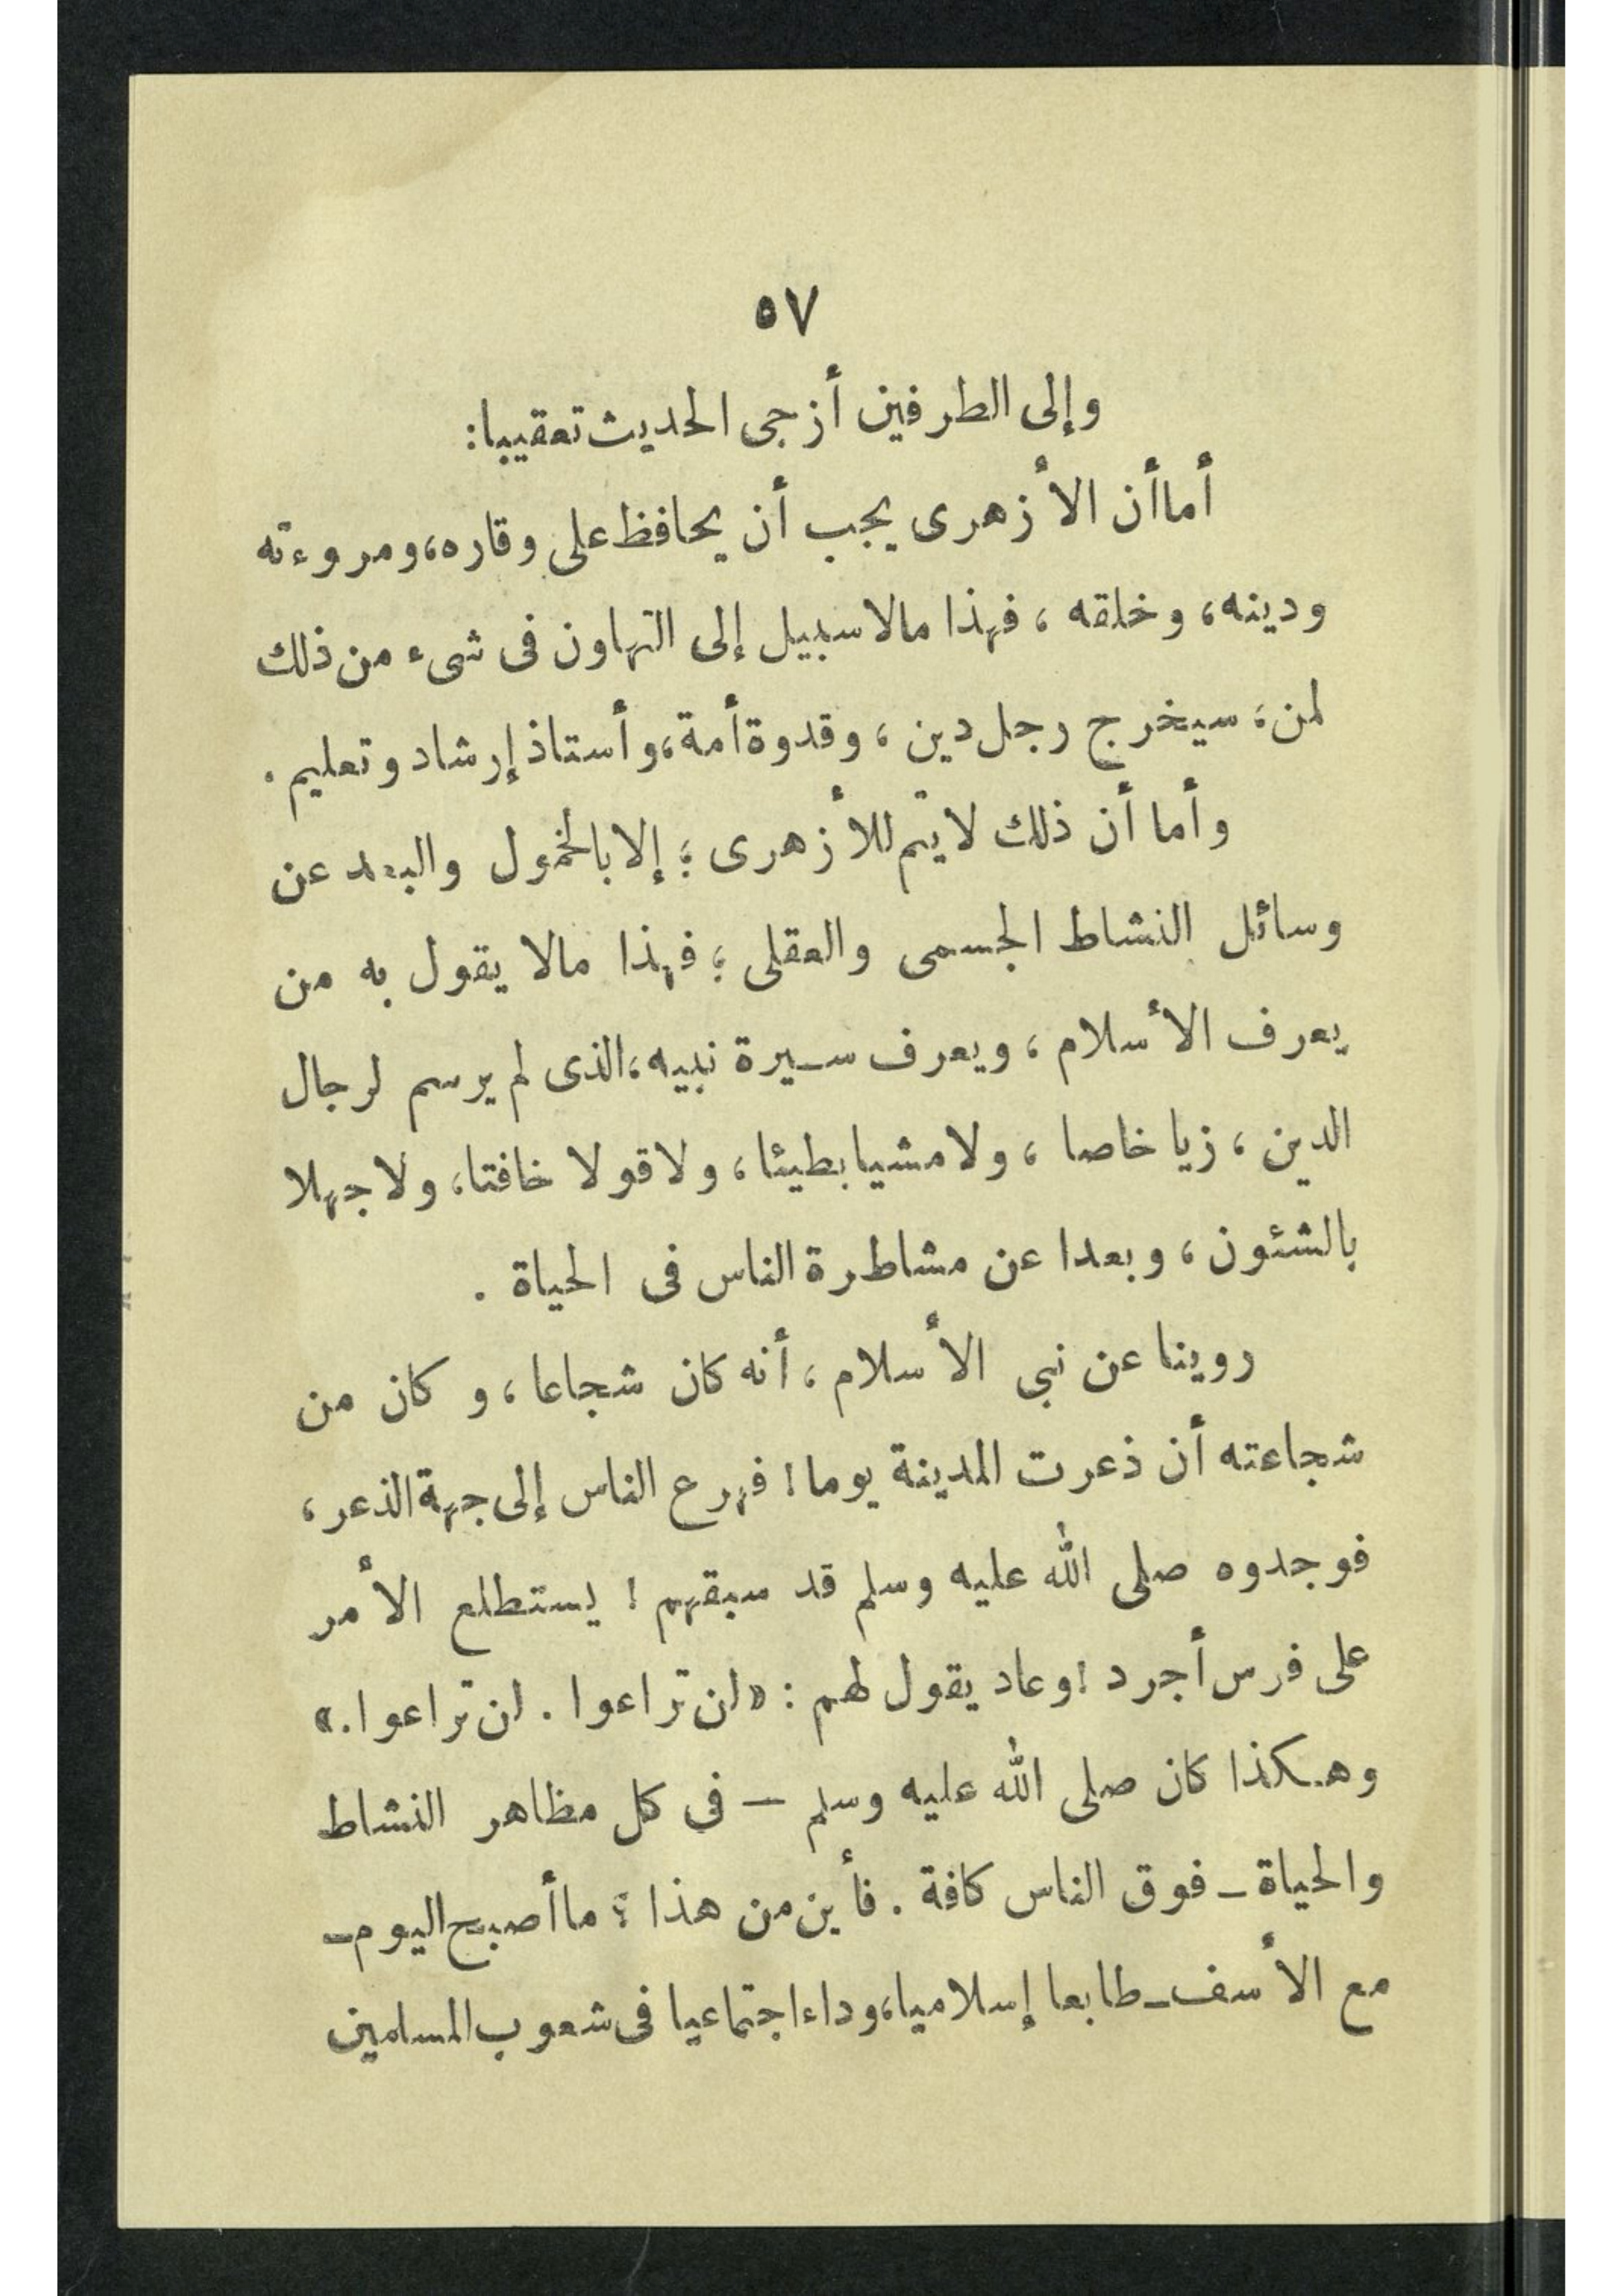 ٥٧
وإلى الطرفين أزجى الحديث تعقيبا:
أما أن الأزهرى يجب أن يحافظ على وقاره، ومروءته
ودينه، وخلقه ، فهذا مالا سبيل إلى التهاون فى شىء من ذلك
لمن، سيخرج رجل دين ، وقدوة أمة، وأستاذ إرشاد وتعليم .
وأما أن ذلك لا يتم للأزهرى ؛ إلا بالخمول والبعد عن
وسائل النشاط الجسمى والعقلى ؛ فهذا مالا يقول به من
يعرف الأسلام ، ويعرف سيرة نبيه، الذى لم يرسم لرجال
الدين ، زيا خاصا ، ولا مشيا بطيئا ، ولا قولا خافتا، ولا جهلا
بالشئون ، وبعدا عن مشاطرة الناس فى الحياة .
روينا عن نبى الأسلام ، أنه كان شجاعا ، و كان من
شجاعته أن ذعرت المدينة يوما ! فهرع الناس إلى جهة الذعر ،
فوجدوه صلى الله عليه وسلم قد سبقهم ! يستطلع الأمر
على فرس أجرد ! وعاد يقول لهم : «لن تراعوا . لن تراعوا.»
وهكذا كان صلى الله عليه وسلم — فى كل مظاهر النشاط
والحياة ــ فوق الناس كافة . فأين من هذا ؟ ما أصبح اليوم ــ
مع الأسف ــ طابعا إسلاميا، وداء اجتماعيا فى شعوب المسلمين